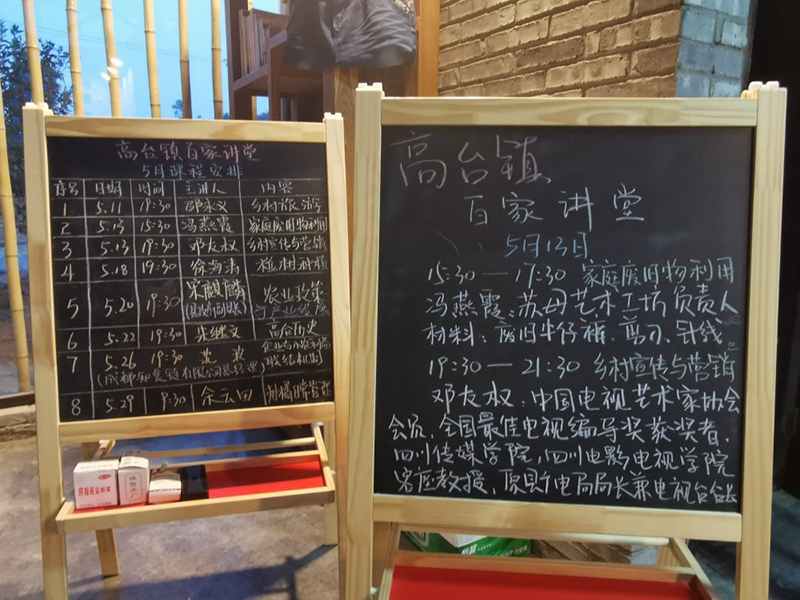 高台镇百家讲堂
5月课程安排
序号 日期 时间 主讲人 内容
1 5.11 19:30 邓永义
2 5.13 15:30 冯燕霞 家庭废旧物利用
3 5.13 19:30 邓友权 乡村宣传与营销
4 5.18 19:30 徐海清
5 5.20 19:30 宋麒麟 农业政策
6 5.22 19:30 朱继文 高台历史
7 5.26 19:30
8 5.29 9:30 余云田
高台镇
百家讲堂
5月13日
15:30—17:30 家庭废旧物利用
冯燕霞:苏母艺术工坊负责人
材料:废旧牛仔裤、剪刀、针线
19:30—21:30 乡村宣传与营销
邓友权:中国电视艺术家协会
会员,全国最佳电视编导奖获奖者,
四川传媒学院,四川电影电视学院
客座教授,原广电局局长兼电视台台长